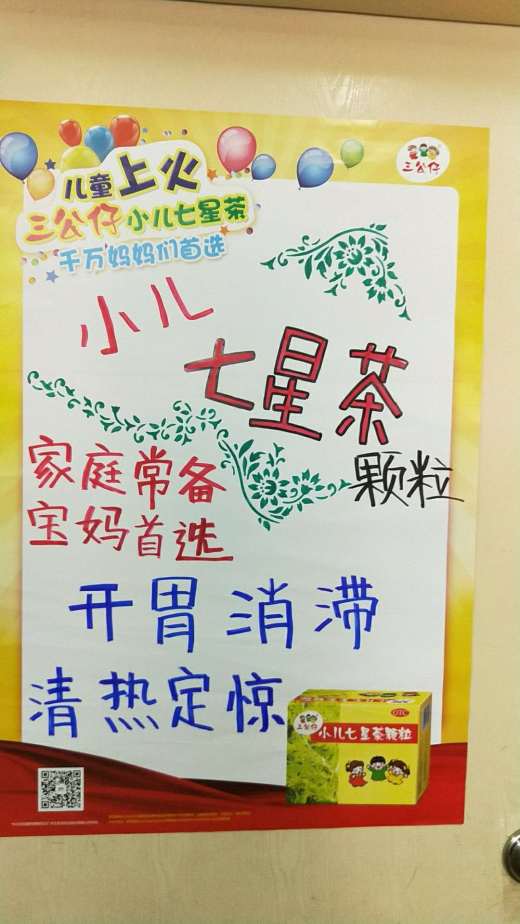 儿童上火
三公仔小儿七星茶
千万妈妈们首选
三公仔
小儿
七星茶
颗粒
家庭常备
宝妈首选
开胃消滞
清热定惊
三公仔
OTC
小儿七星茶颗粒